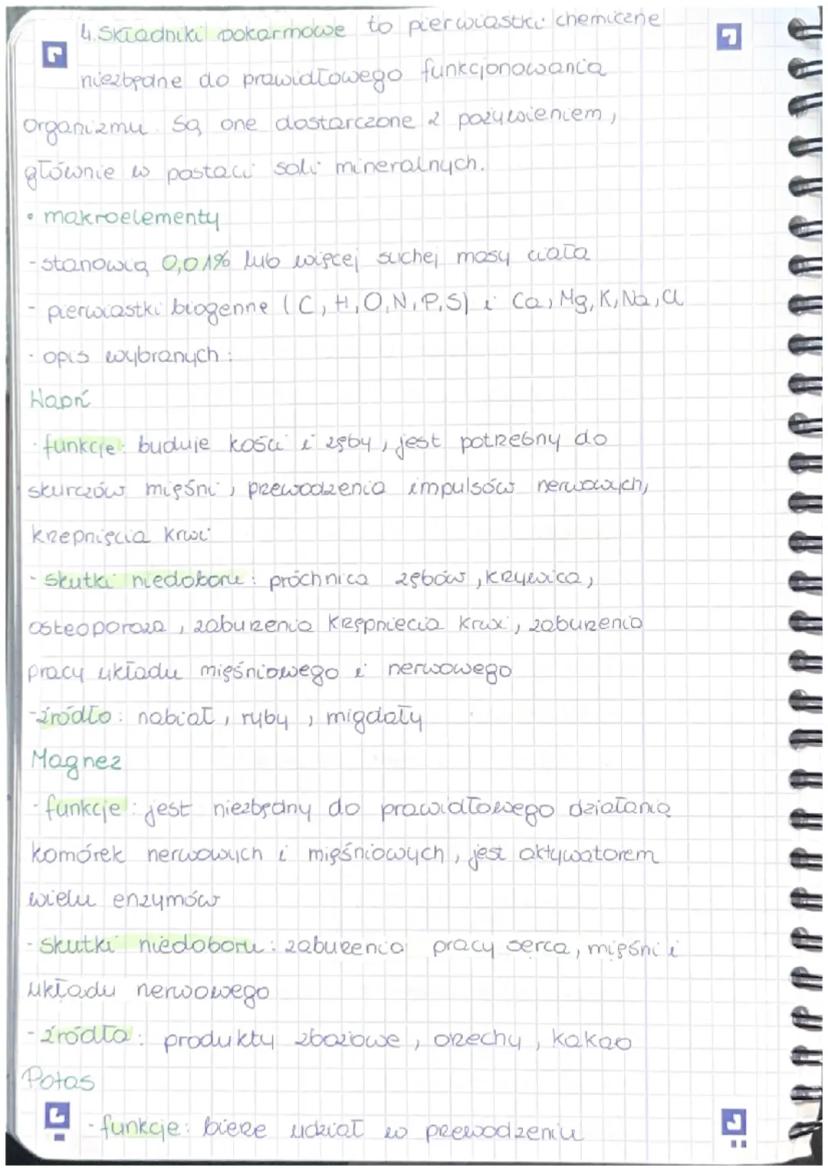 4. Składniki pokarmowe to pierwiastki chemiczne
niezbędne do prawidłowego funkcjonowania
organizmu. Są one dostarczone z pożywieniem,
głównie w postaci soli mineralnych.
• makroelementy
- stanowią 0,01% lub więcej suchej masy ciała
- pierwiastki biogenne (C, H, O, N, P, S) i Ca, Mg, K, Na, Cl
- opis wybranych:
Wapń
- funkcje: buduje kości i zęby, jest potrzebny do
skurczów mięśni, przewodzenia impulsów nerwowych,
krzepnięcia krwi
- skutki niedoboru: próchnica zębów, krzywica,
osteoporoza, zaburzenia krzepnięcia krwi, zaburzenia
pracy układu mięśniowego i nerwowego
- źródło: nabiał, ryby, migdały
Magnez
- funkcje: jest niezbędny do prawidłowego działania
komórek nerwowych i mięśniowych, jest aktywatorem
wielu enzymów
- skutki niedoboru: zaburzenia pracy serca, mięśni i
układu nerwowego
- źródła: produkty zbożowe, orzechy, kakao
Potas
- funkcje: bierze udział w przewodzeniu